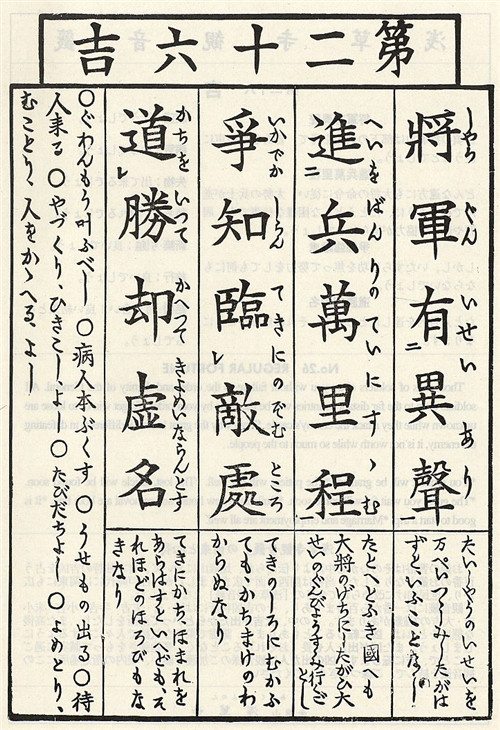 第二十六吉
將軍有異聲
しやうぐんいせいあり
進兵萬里程
へいをばんりのていにすゝむ
爭知臨敵處
いかでかしらんてきにのぞむところ
道勝却虚名
かちをいつてかへつてきよめいならんとす
たいしやうのいせいを
万ぺいつゝしみしたがは
ずといふことなし
たとへとふき國へも
大将のげちにしたがひ大
ぜいのぐんぴやうすゝみ行ごとし
てきのところにむかふ
てもかちまけのわ
からぬなり
てきにかちほまれを
あらはすといへども、そ
れほどのほろびもな
きなり
○ぐわんもう叶ふべし ○病人本ぶくす ○うせもの出る ○待
人来る ○やづくり、ひきこしよし ○たびだちよし ○よめとり、
むことり、人をかゝへる、よし